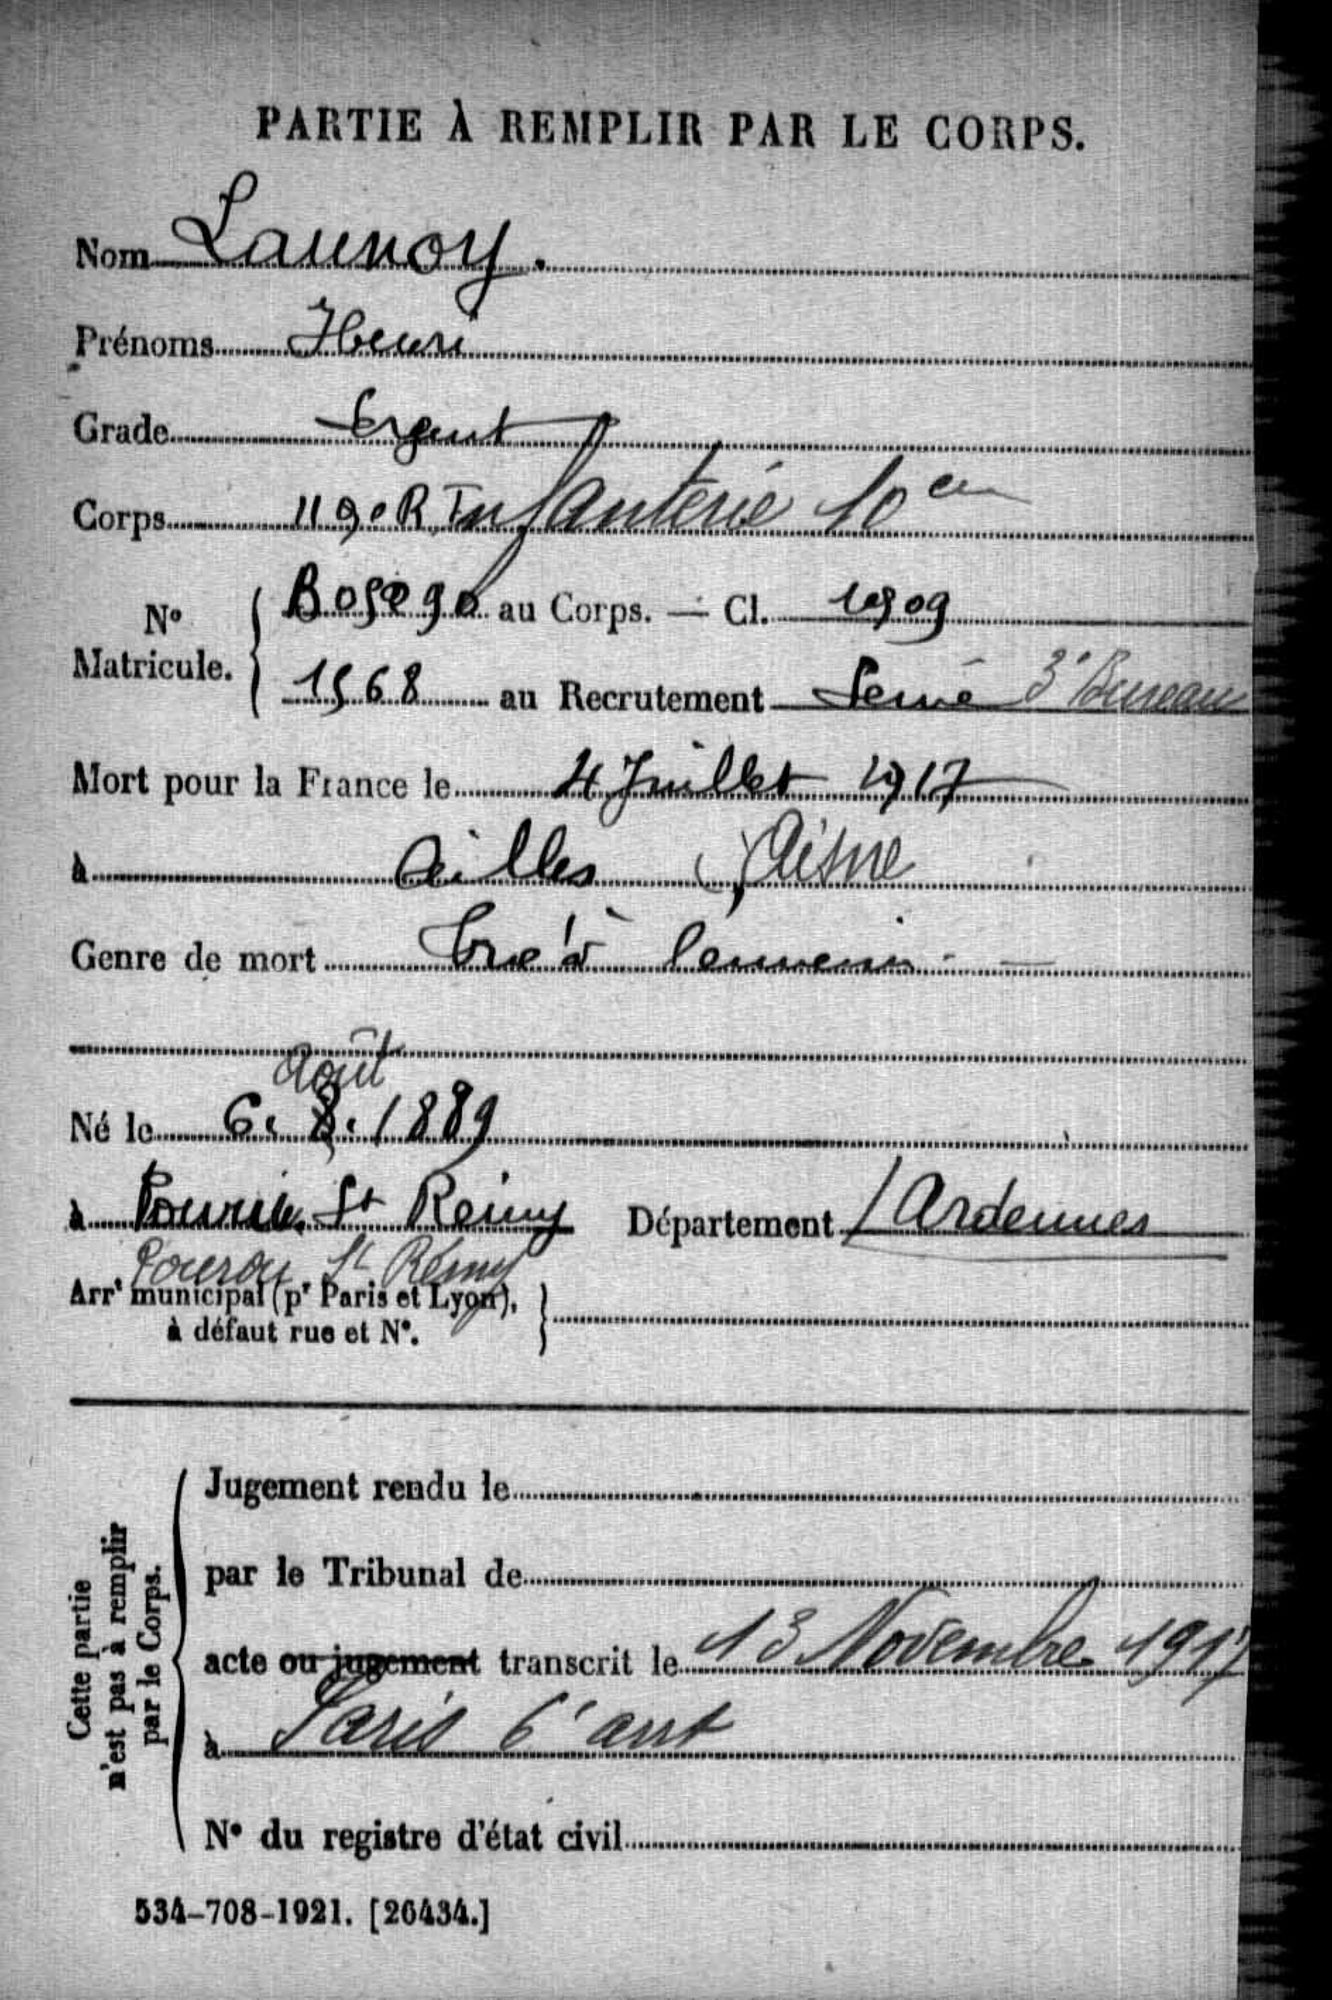 PARTIE À REMPLIR PAR LE CORPS.
Nom Launoy.
Prénoms Henri
Grade Sergent
Corps 119e R Infanterie 10 cie
No Matricule. au Corps. — Cl. 1909
1568 au Recrutement Seine 3e Bureau
Mort pour la France le 4 Juillet 1917
à Ailles (Aisne
Genre de mort Tué à l'ennemi
Août
Né le 6. 8. 1889
à St Remy Département Ardennes
Pourou St Rémy
Arrt municipal (pr Paris et Lyon),
à défaut rue et No.
Cette partie
n'est pas à remplir
par le Corps.
Jugement rendu le
par le Tribunal de
acte ou jugement transcrit le 13 Novembre 1917
à Paris 6e arrt
No du registre d'état civil
534-708-1921. [26434.]